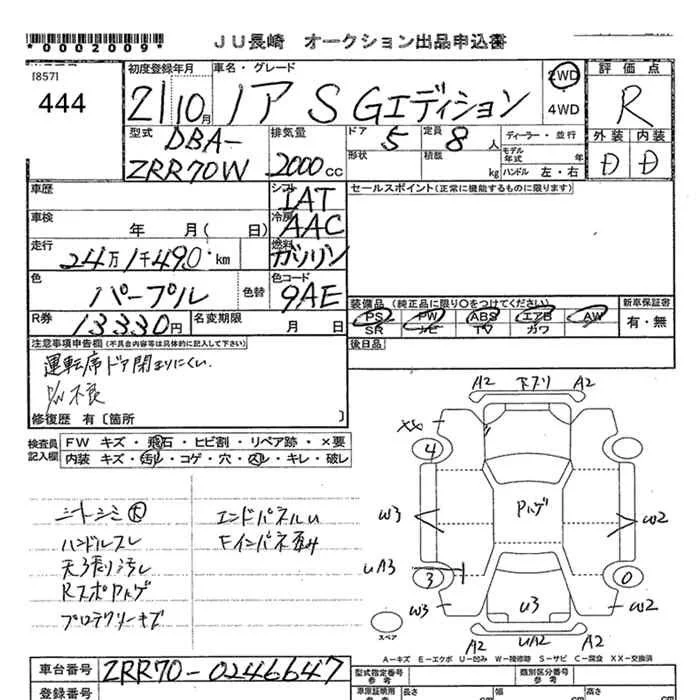 *0002009*
JU長崎 オークション出品申込書
[857]
444
初度登録年月
21 10月
車名・グレード
ノア S Gエディション
2WD
4WD
評価点
R
型式
DBA-
ZRR70W
排気量
2000cc
ドア 5
定員 8人
形状
積載 kg
ディーラー・並行
モデル年式 年
ハンドル 左・右
外装 内装
D D
車歴
シフト
IAT
セールスポイント(正常に機能するものに限ります)
車検 年 月(日)
冷房
AAC
走行
24万1千490km
燃料
ガソリン
色
パープル
色替
色コード
9AE
R券
13330円
名変期限 月 日
装備品(純正品に限り○をつけてください)
PS PW ABS エアB AW
SR ナビ TV カワ
新車保証書
有・無
注意事項申告欄(不具合内容等は具体的に記入して下さい)
運転席ドア閉まりにくい
P/W不良
修復歴 有〔箇所 〕
後日品
検査員記入欄
FW キズ・飛石・ヒビ割・リペア跡・×要
内装 キズ・汚れ・コゲ・穴・スレ・キレ・破レ
シートシミ大
ハンドルスレ
天張り汚レ
RスポPハゲ
プロテクリーキズ
エンドパネルU
Fインパネ歪み
A2 下ブリ A2
XX
4
Pハゲ
W3
W2
UA3
3
0
W3
U3
W2
A2 U/A2 A2
スペア
A-キズ E-エクボ U-凹み W-補修跡 S-サビ C-腐食 XX-交換済
車台番号
ZRR70-0246647
登録番号
型式指定番号
参考
類別区分番号
参考
車庫証明用
参考
長さ 幅 高さ